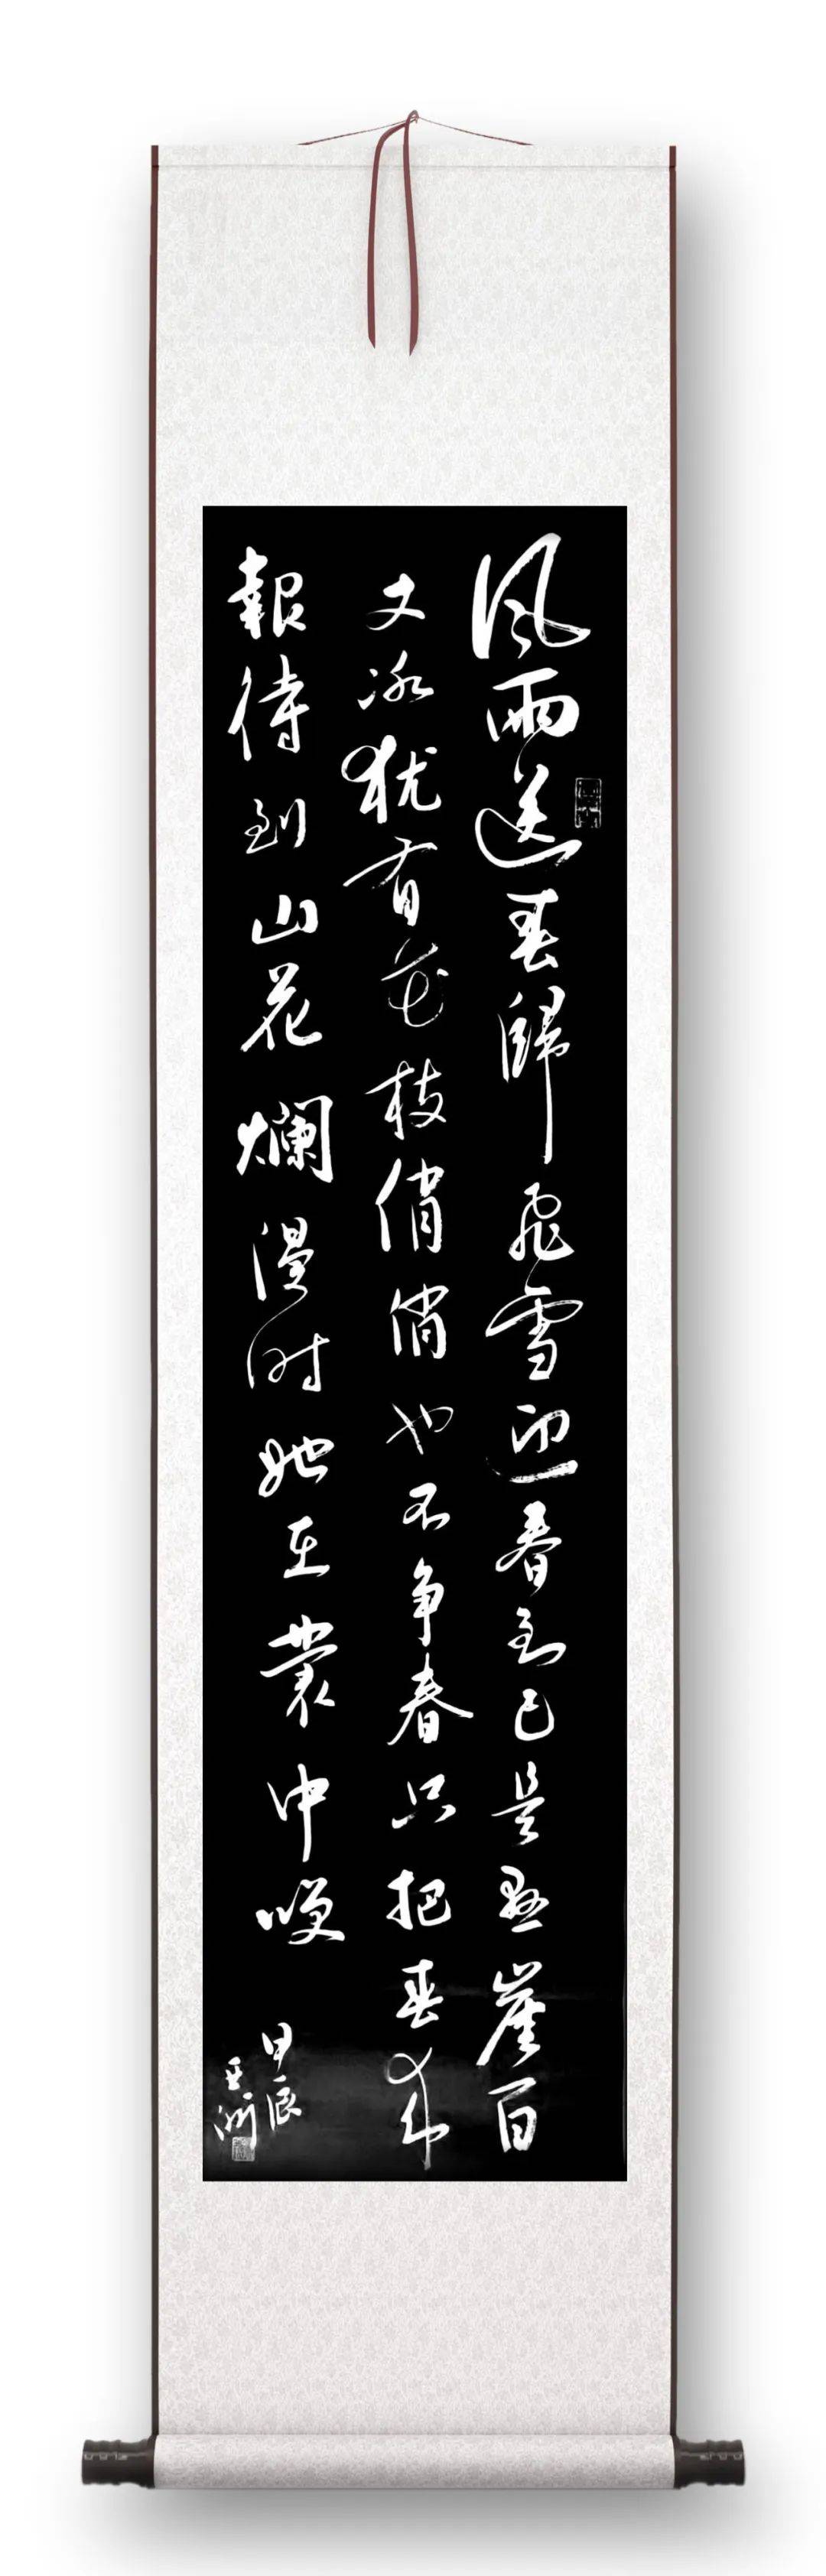 风雨送春歸飛雪迎春到已是悬崖百
丈冰犹有花枝俏俏也不争春只把春来
報待到山花爛漫时她在叢中咲
甲辰